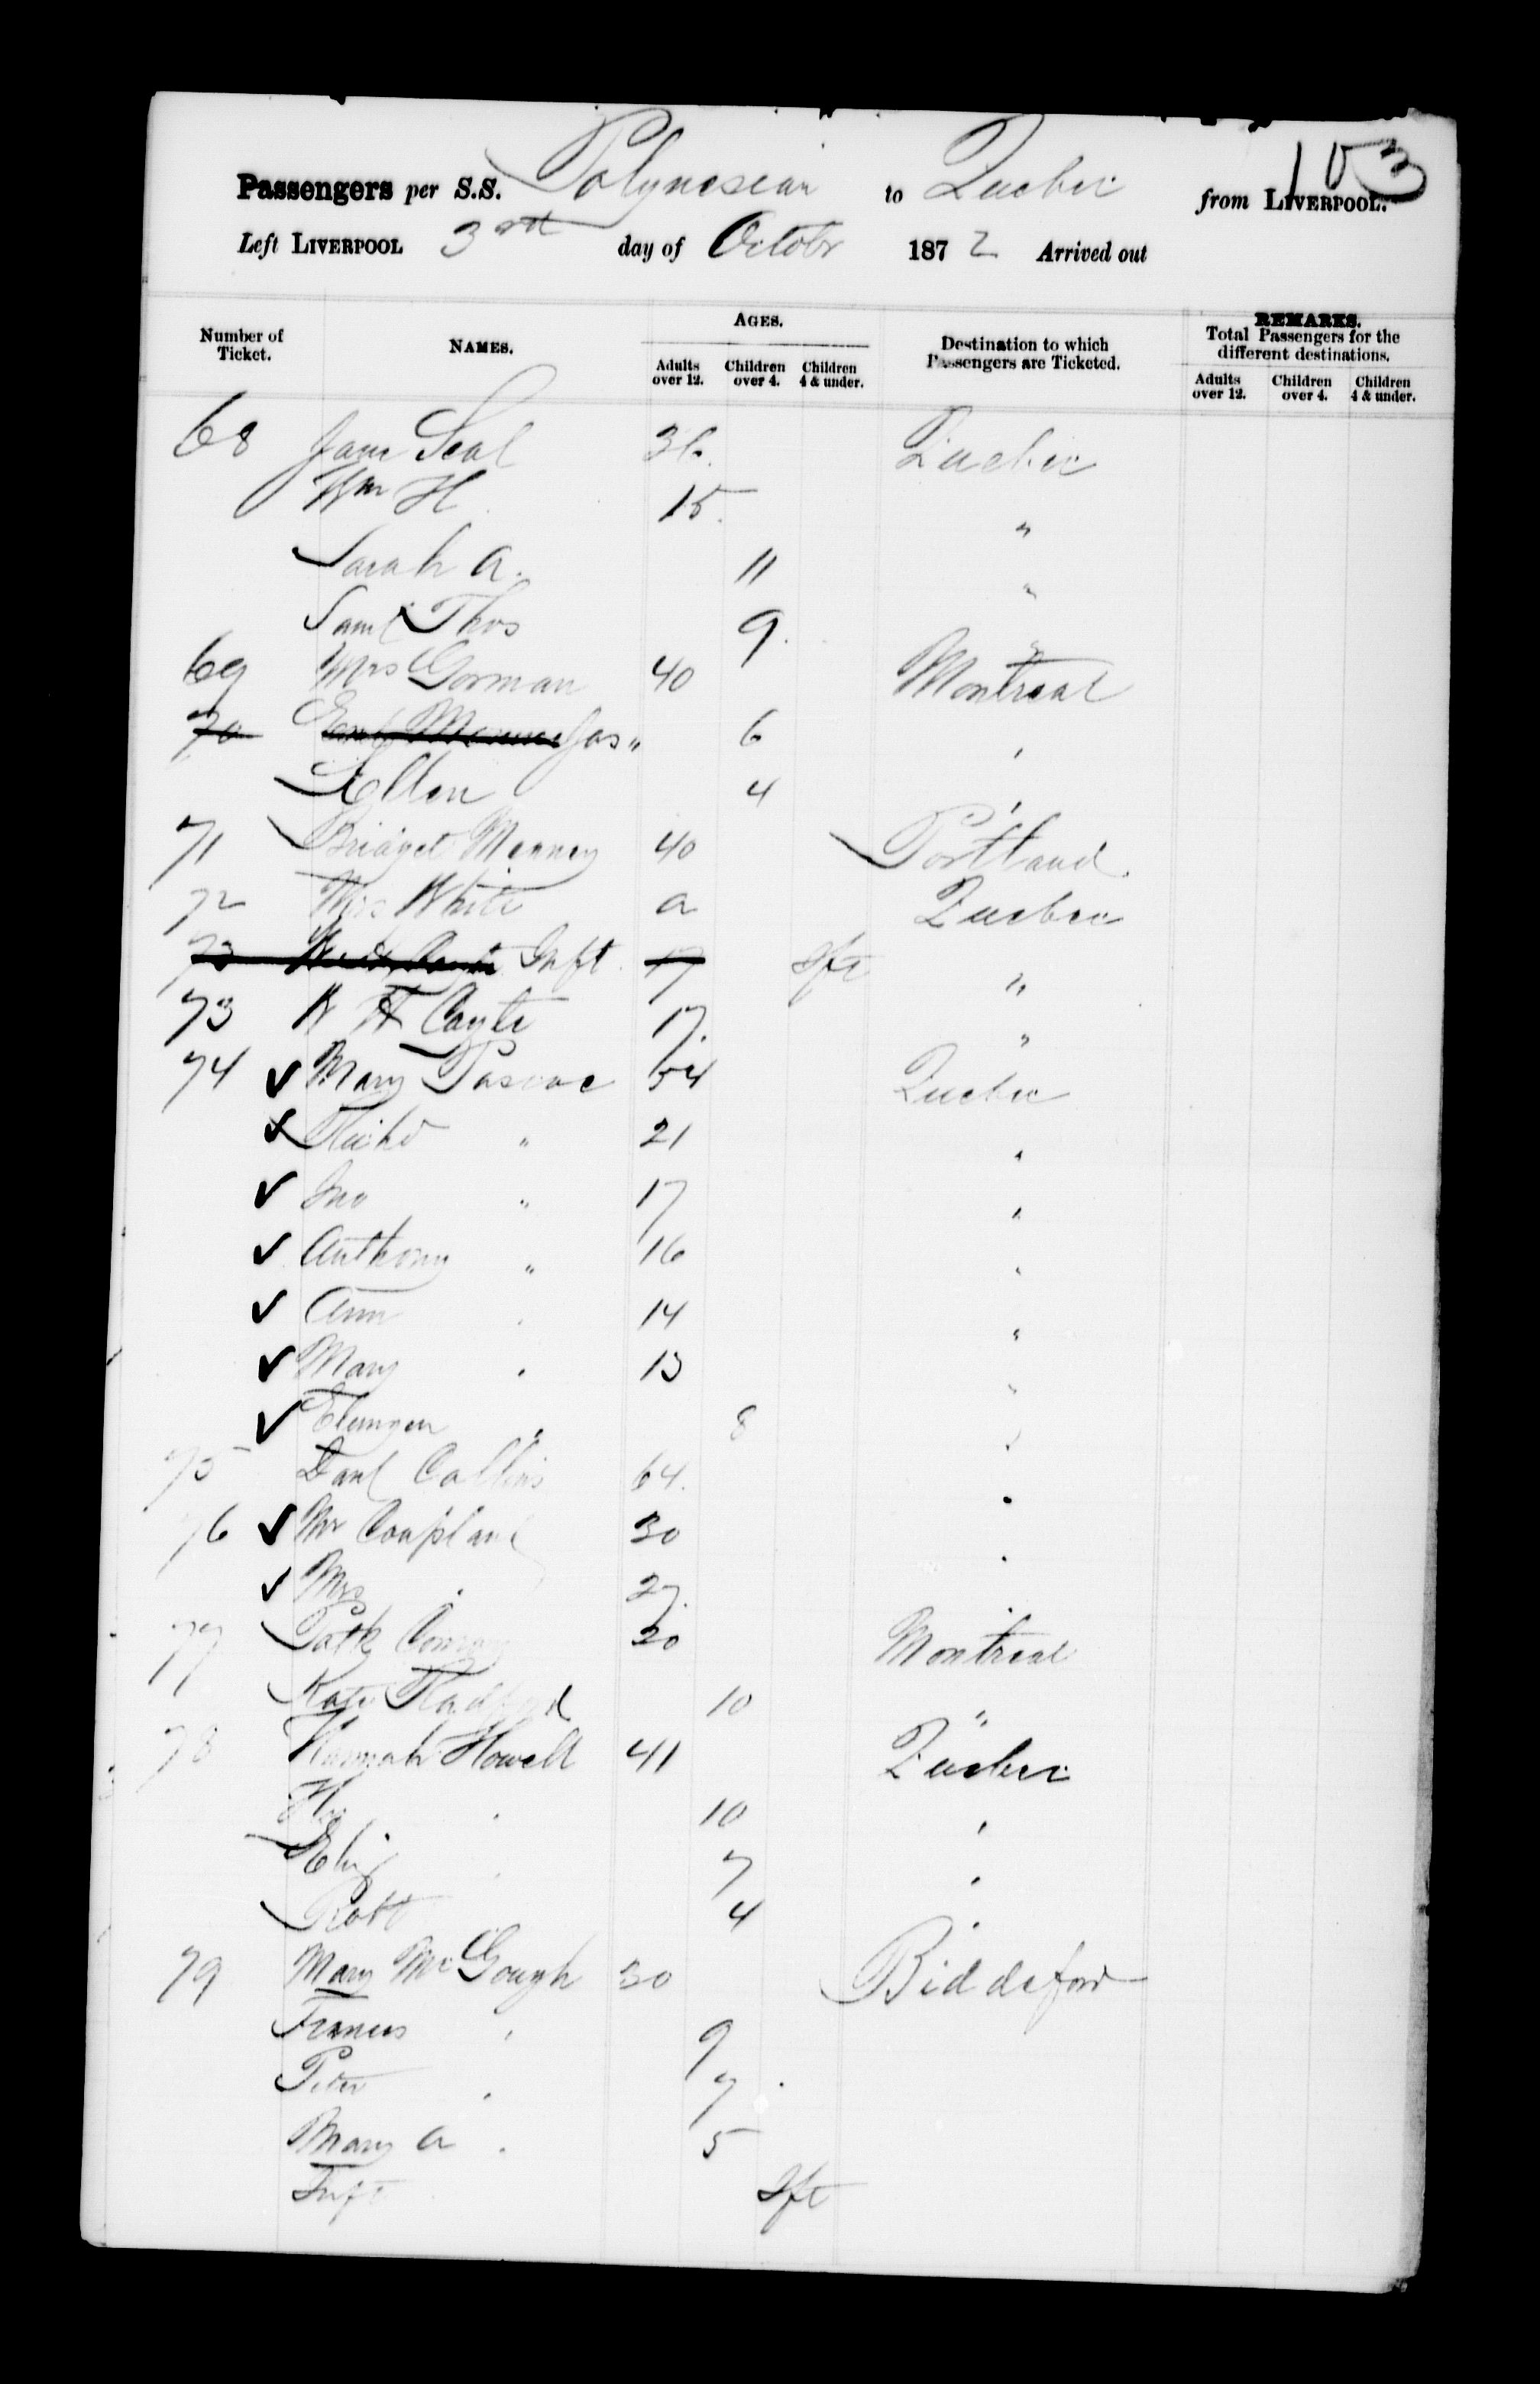 103
Passengers per S.S. Polynesian to Quebec from LIVERPOOL.
Left LIVERPOOL 3rd day of Octobr 1872 Arrived out
Number of Ticket. NAMES. AGES. Destination to which Passengers are Ticketed. REMARKS. Total Passengers for the different destinations.
Adults over 12. Children over 4. Children 4 & under. Adults over 12. Children over 4. Children 4 & under.
68 Jane Seal 36. Quebec
Wm H 15. "
Sarah A. 11 "
Saml Thos 9. "
69 Mrs Gorman 40 Montreal
70 Jas " 6 "
Ellen 4 "
71 Bridget Manney 40 Portland
72 Mrs White a Quebec
73 Inft. 17 Ift "
73 W H Cayte 17. "
74 ✓ Mary Pascoe 54 Quebec
✓ Richd " 21 "
✓ Jno " 17 "
✓ Anthony " 16 "
✓ Ann " 14 "
✓ Mary " 13 "
✓ " 8 "
75 Danl Collins 64. "
76 ✓ Mr Coupland 30 "
✓ Mrs " 27. "
77 Patk 20 Montreal
Kate 10 "
78 Hannah Howell 41 Quebec
" 10 "
Eliz " 7 "
Robt 4 "
79 Mary McGough 30 Biddeford
Francis " 9
Peter " 7
Mary A " 5
Inft Ift